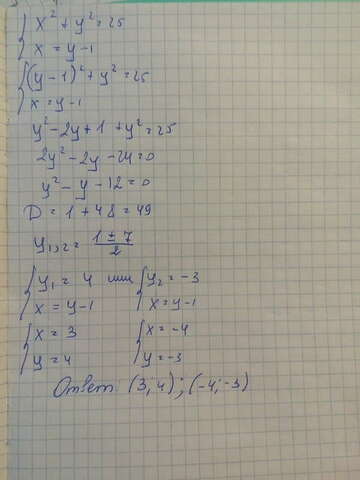 { x² + y² = 25
{ x = y - 1
{ (y - 1)² + y² = 25
{ x = y - 1
y² - 2y + 1 + y² = 25
2y² - 2y - 24 = 0
y² - y - 12 = 0
D = 1 + 48 = 49
y₁,₂ = (1 ± 7)/2
{ y₁ = 4 или { y₂ = -3
{ x = y - 1 { x = y - 1
{ x = 3 { x = -4
{ y = 4 { y = -3
Ответ (3; 4); (-4; -3)